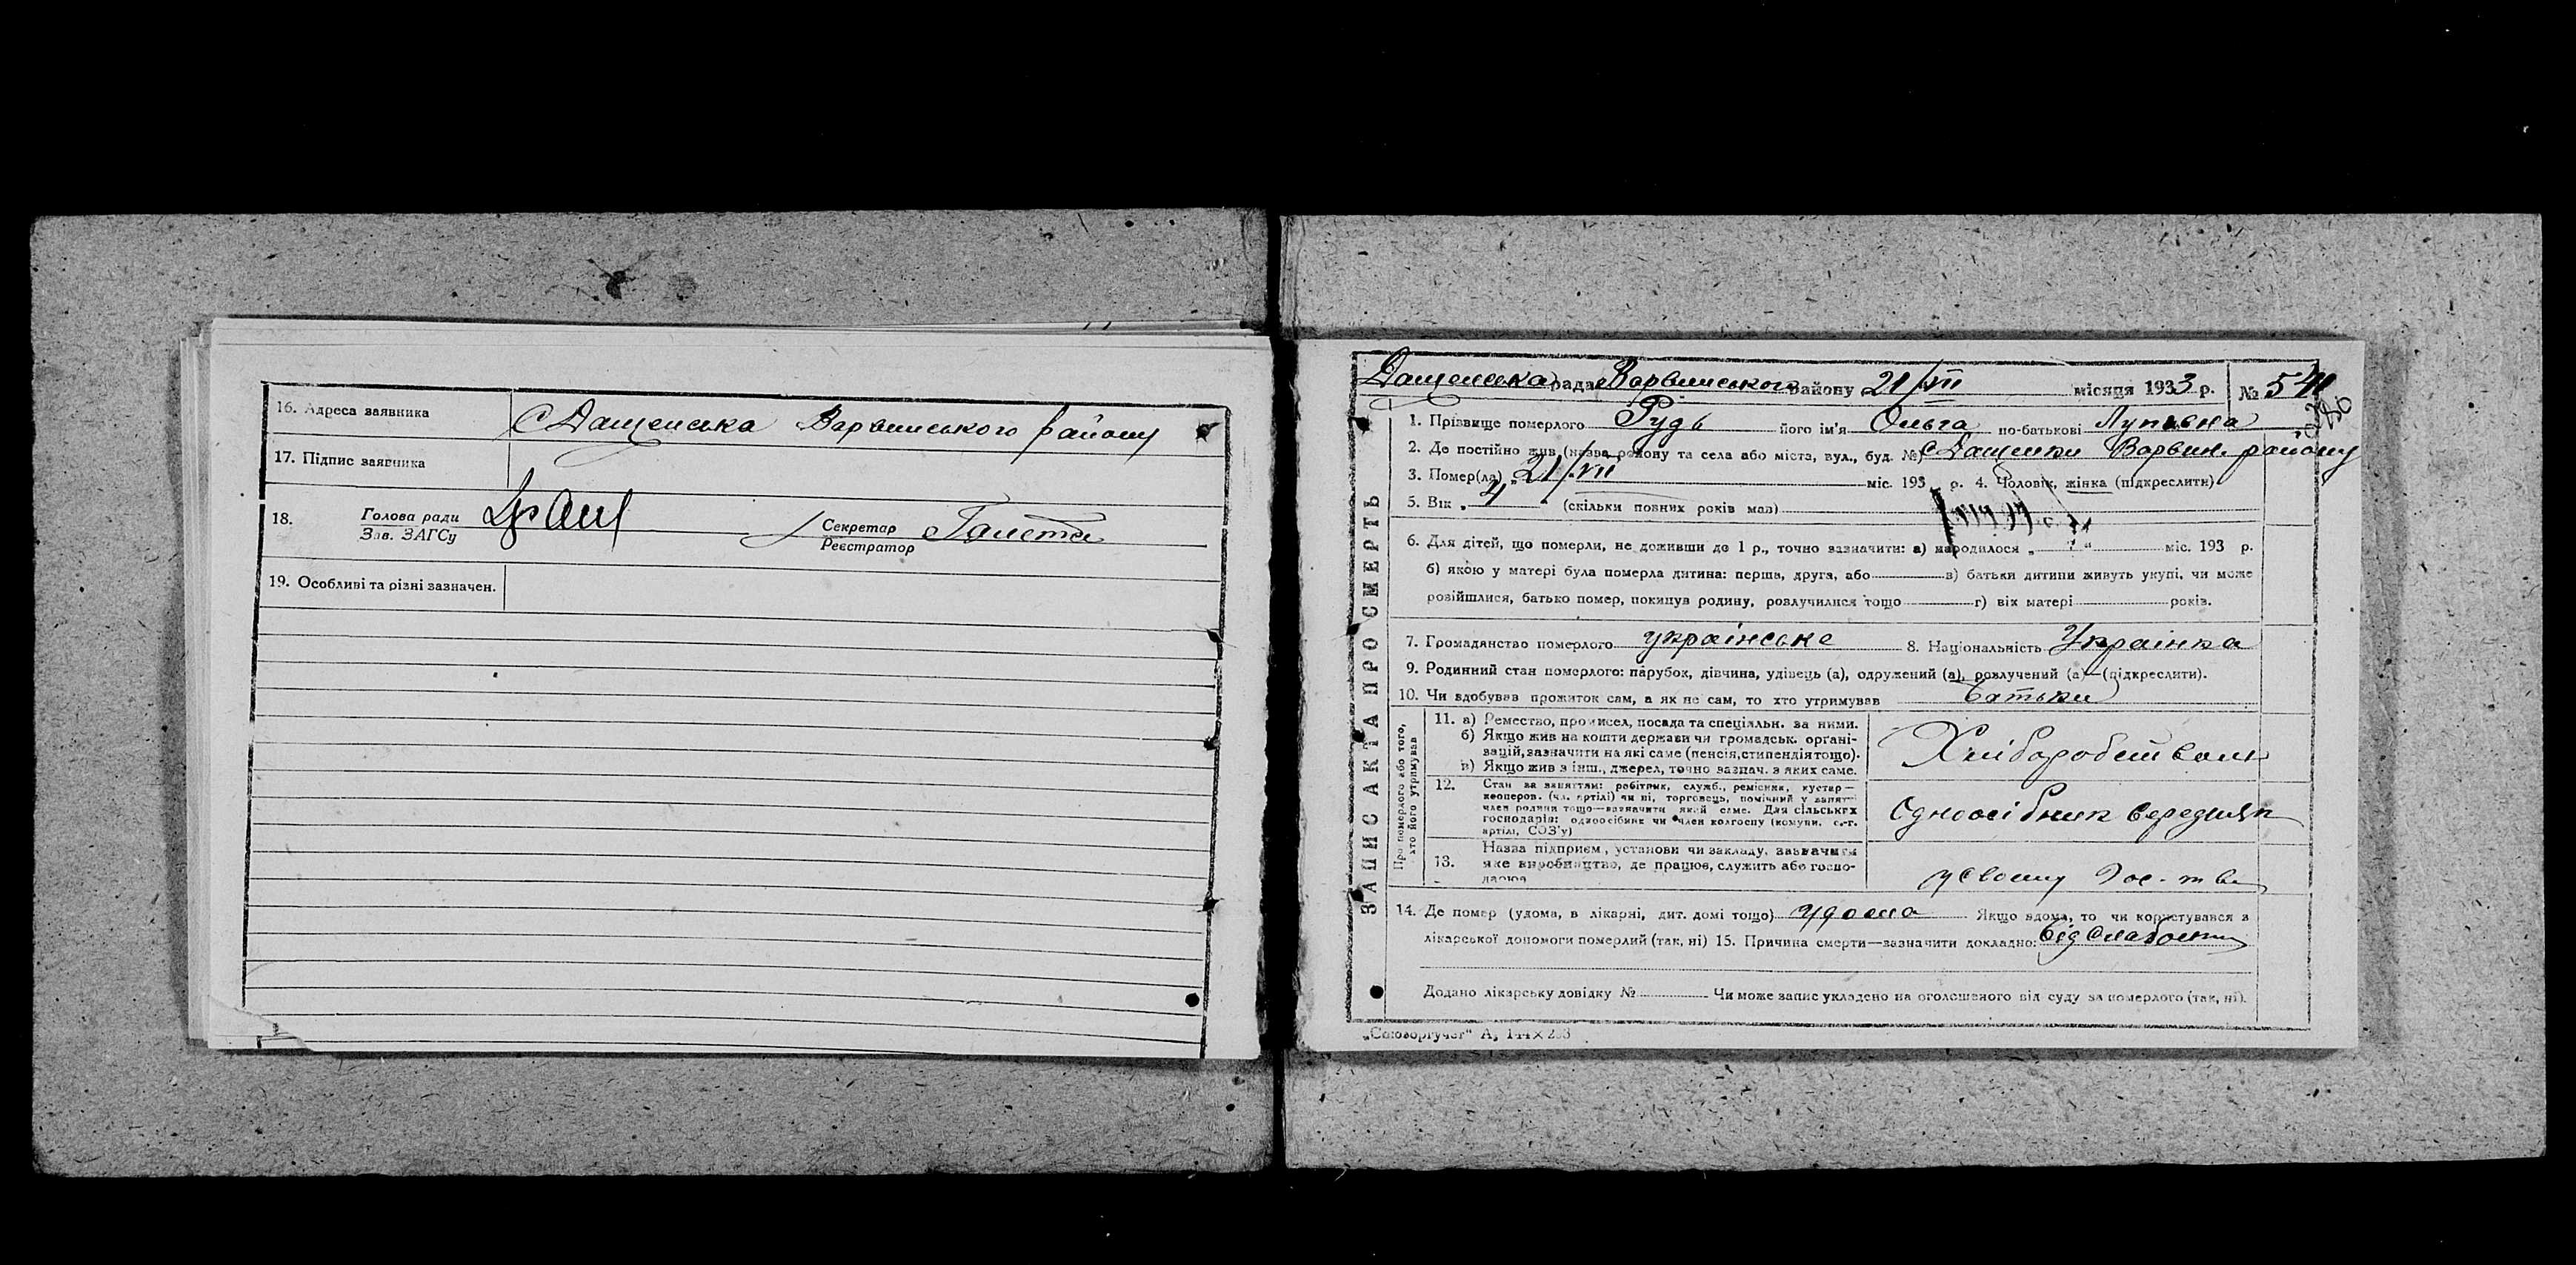 16. Адреса заявника С Дащенська Варвинського району
17. Підпис заявника
18. Голова ради Секретар Галета
Зав. ЗАГСу Реєстратор
19. Особливі та різні зазначен.
ЗАПИС АКТА ПРО СМЕРТЬ
Дащенська рада Варвинського району 21/VII місяця 1933 р. № 54
1. Прізвище померлого Рудь його ім'я Ольга по-батькові
2. Де постійно жив (назва району та села або міста, вул., буд. №) С Дащенки Варвин. району
3. Помер(ла) „21/VII міс. 193 р. 4. Чоловік, жінка (підкреслити)
5. Вік „4" (скільки повних років мав)
6. Для дітей, що померли, не доживши до 1 р., точно зазначити: а) народилося „ " міс. 193 р.
б) якою у матері була померла дитина: перша, друга, або в) батьки дитини живуть укупі, чи може
розійшлися, батько помер, покинув родину, розлучилися тощо г) вік матері років.
7. Громадянство померлого українське 8. Національність Українка
9. Родинний стан померлого: парубок, дівчина, удівець (а), одружений (а), розлучений (а)—(підкреслити).
10. Чи здобував прожиток сам, а як не сам, то хто утримував батьки
Про померлого або того, хто його утримував
11. а) Ремество, промисел, посада та спеціяльн. за ними.
б) Якщо жив на кошти держави чи громадськ. органі-
зацій, зазначити на які саме (пенсія, стипендія тощо).
в) Якщо жив з інш., джерел, точно зазнач. з яких саме.
Хліборобством
12. Стан за заняттям: робітник, служб., ремісник, кустар—
кооперов. (чл. артілі) чи ні, торговець, помічний у занят.
член родини тощо—зазначити який саме. Для сільських
господарів: одноосібник чи член колгоспу (комуни, с.-г.
артілі, СОЗ'у)
Одноосібник середняк
13. Назва підприєм., установи чи закладу, зазначити
яке виробництво, де працює, служить або госпо-
дарює
у своему гос-тві
14. Де помер (удома, в лікарні, дит. домі тощо) удома Якщо вдома, то чи користувався з
лікарської допомоги померлий (так, ні) 15. Причина смерти—зазначити докладно: від слабости
Додано лікарську довідку № Чи може запис укладено на оголошеного від суду за померлого (так, ні).
„Союзоргучет" А₅ 144×203